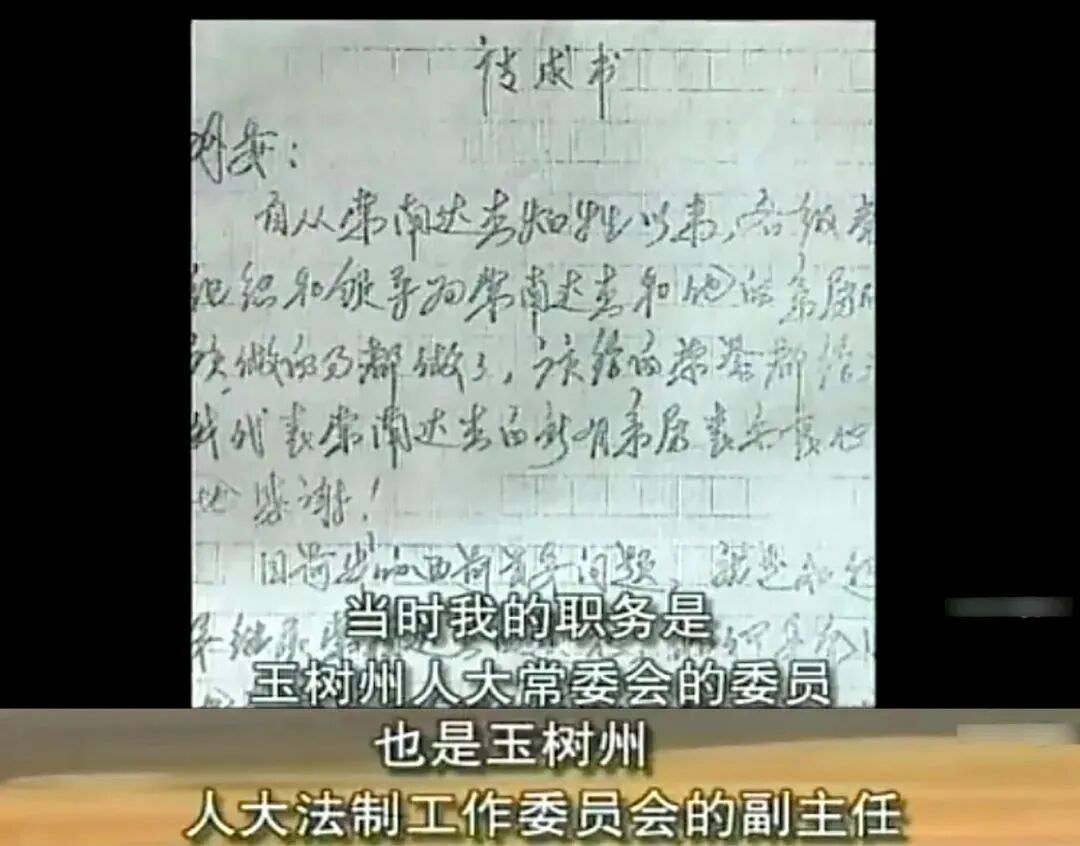 书
州委：
自从索南达杰牺牲以来，各级党
组织和领导对索南达杰和他的亲属
该做的都做了，该给的荣誉都给
我代表索南达杰的所有亲属表示衷心
地感谢！
目前 问题 就是
来继承索南达杰
当时我的职务是
玉树州人大常委会的委员
也是玉树州
人大法制工作委员会的副主任